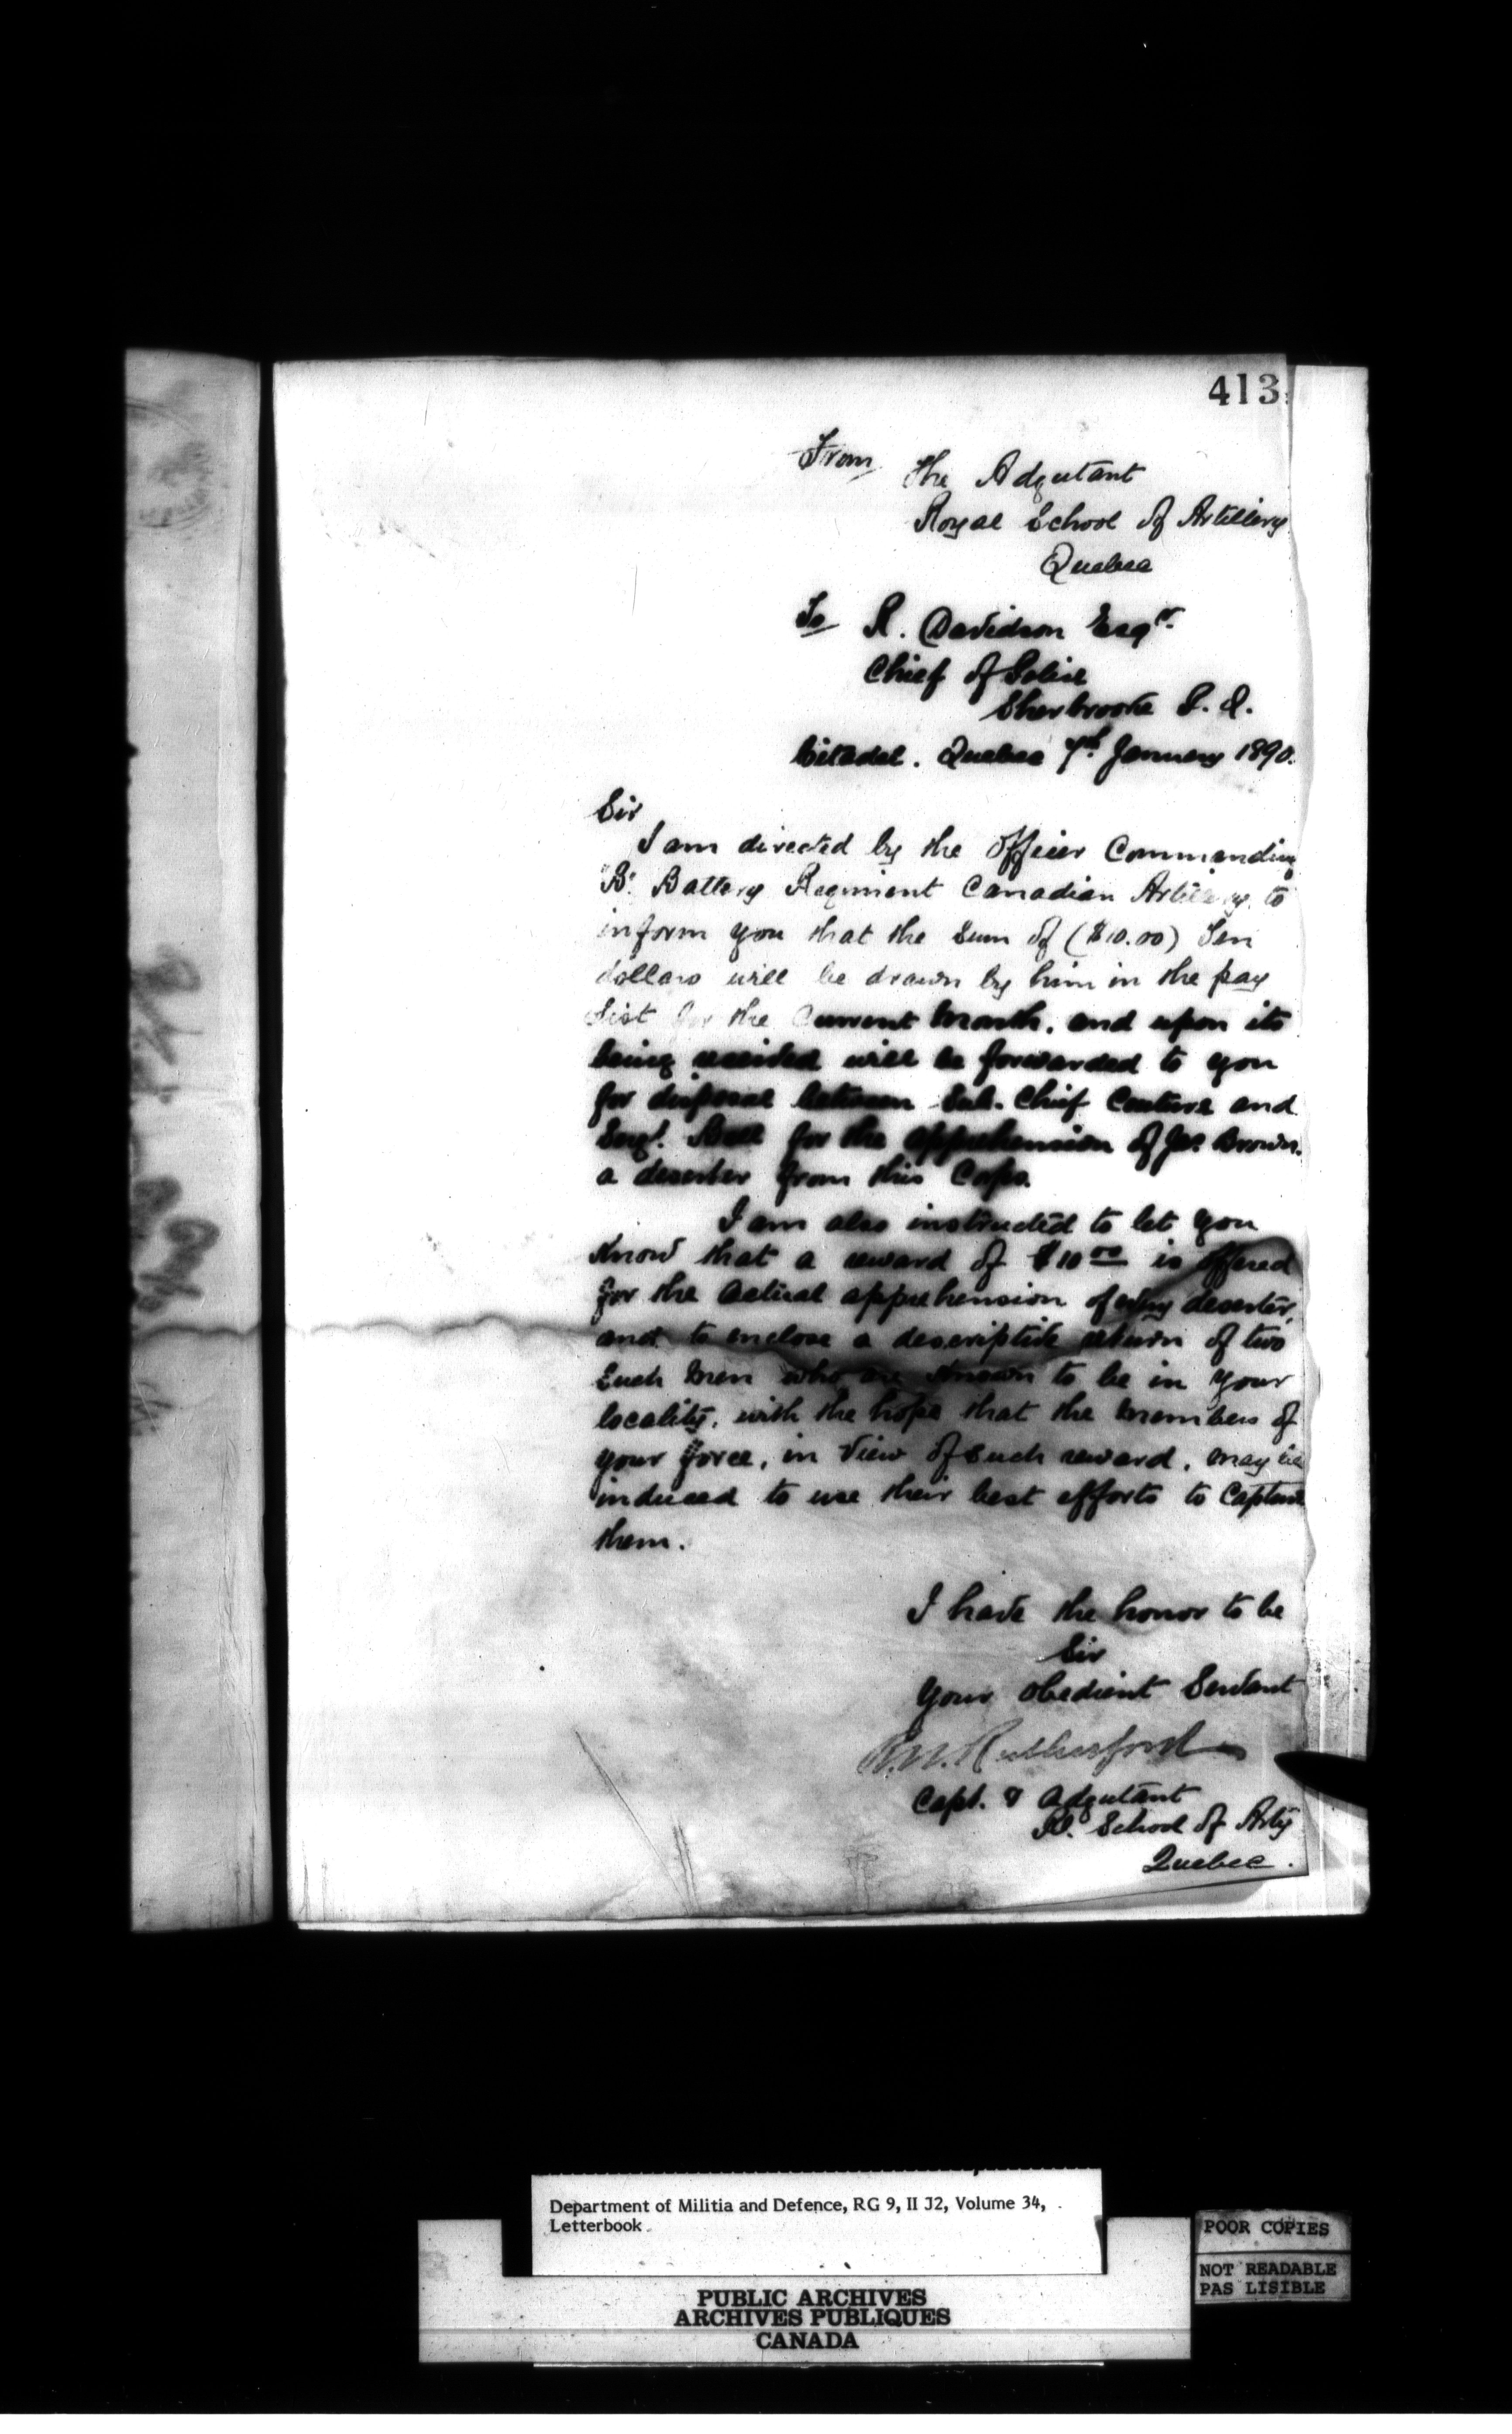 413
From
The Adjutant
Royal School of Artillery
Quebec
To R. Davidson Esqr.
Chief of Police
Sherbrooke P. Q.
Citadel. Quebec 7th January 1890.
Sir
I am directed by the Officer Commanding
"B" Battery Regiment Canadian Artillery to
inform you that the sum of ($10.00) Ten
dollars will be drawn by him in the pay
list for the current month, and upon its
being received will be forwarded to you
for disposal between Sub. Chief Couture and
Sergt. for the apprehension of Jas. Brown.
a deserter from this Corps.
I am also instructed to let you
know that a reward of $10 00 is offered
for the actual apprehension of every deserter,
and to enclose a descriptive return of two
such men who are known to be in your
locality, with the hope that the members of
your force, in view of such reward, may be
induced to use their best efforts to capture
them.
I have the honor to be
Sir
Your obedient Servant
Rutherford
Capt. & Adjutant
Rl. School of Arty
Quebec.
Department of Militia and Defence, RG 9, II J2, Volume 34,
Letterbook
POOR COPIES
NOT READABLE
PAS LISIBLE
PUBLIC ARCHIVES
ARCHIVES PUBLIQUES
CANADA